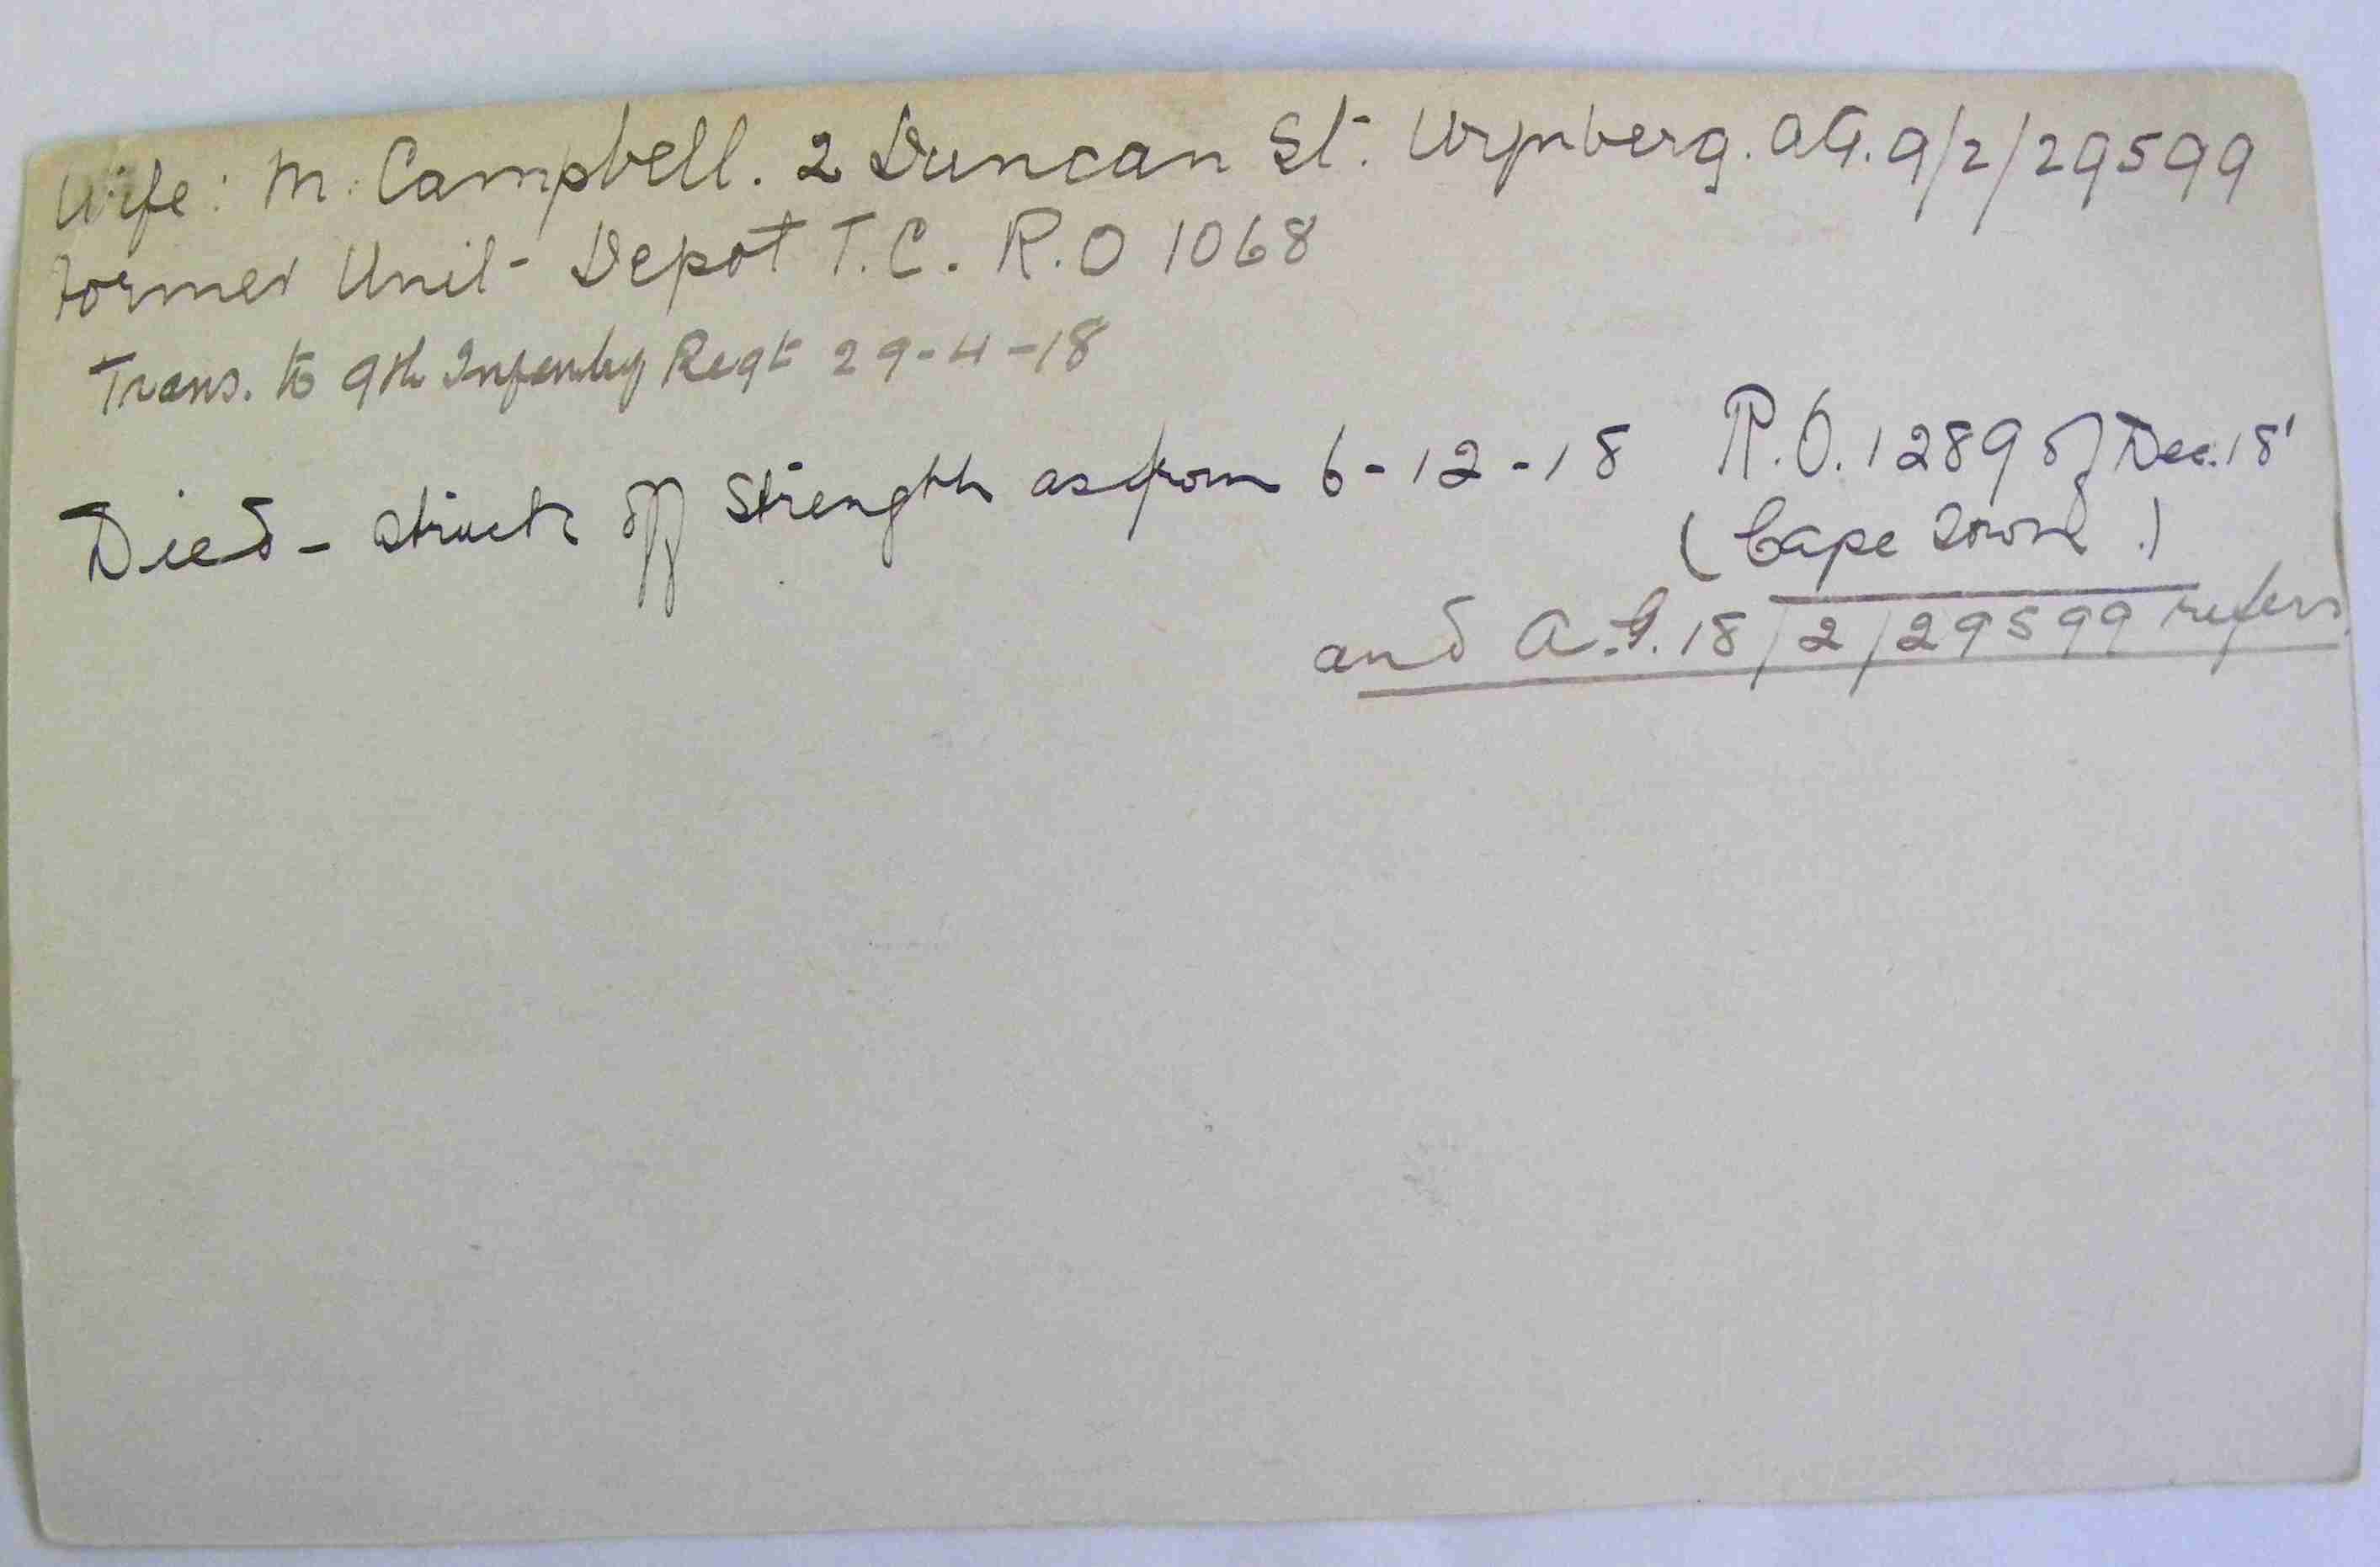 Wife: M. Campbell. 2 Duncan St. Wynberg. AG. 9/2/29599
Former Unit - Depot T.C. R.O 1068
Trans. to 9th Infantry Regt 29-4-18
Died - struck off strength as from 6-12-18 R.O. 1289 of Dec. 18'
(Cape Town.)
and A.G. 18/2/29599 refers.